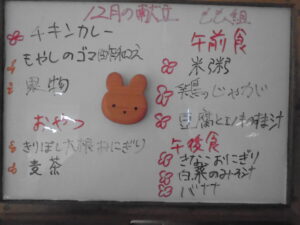 12月の献立
チキンカレー
もやしのゴマ酢和え
果物
おやつ
きりぼし大根おにぎり
麦茶
もも組
午前食
米粥
じゃが
豆腐と
すまし汁
午後食
きなこおにぎり
白菜のみそ汁
バナナ